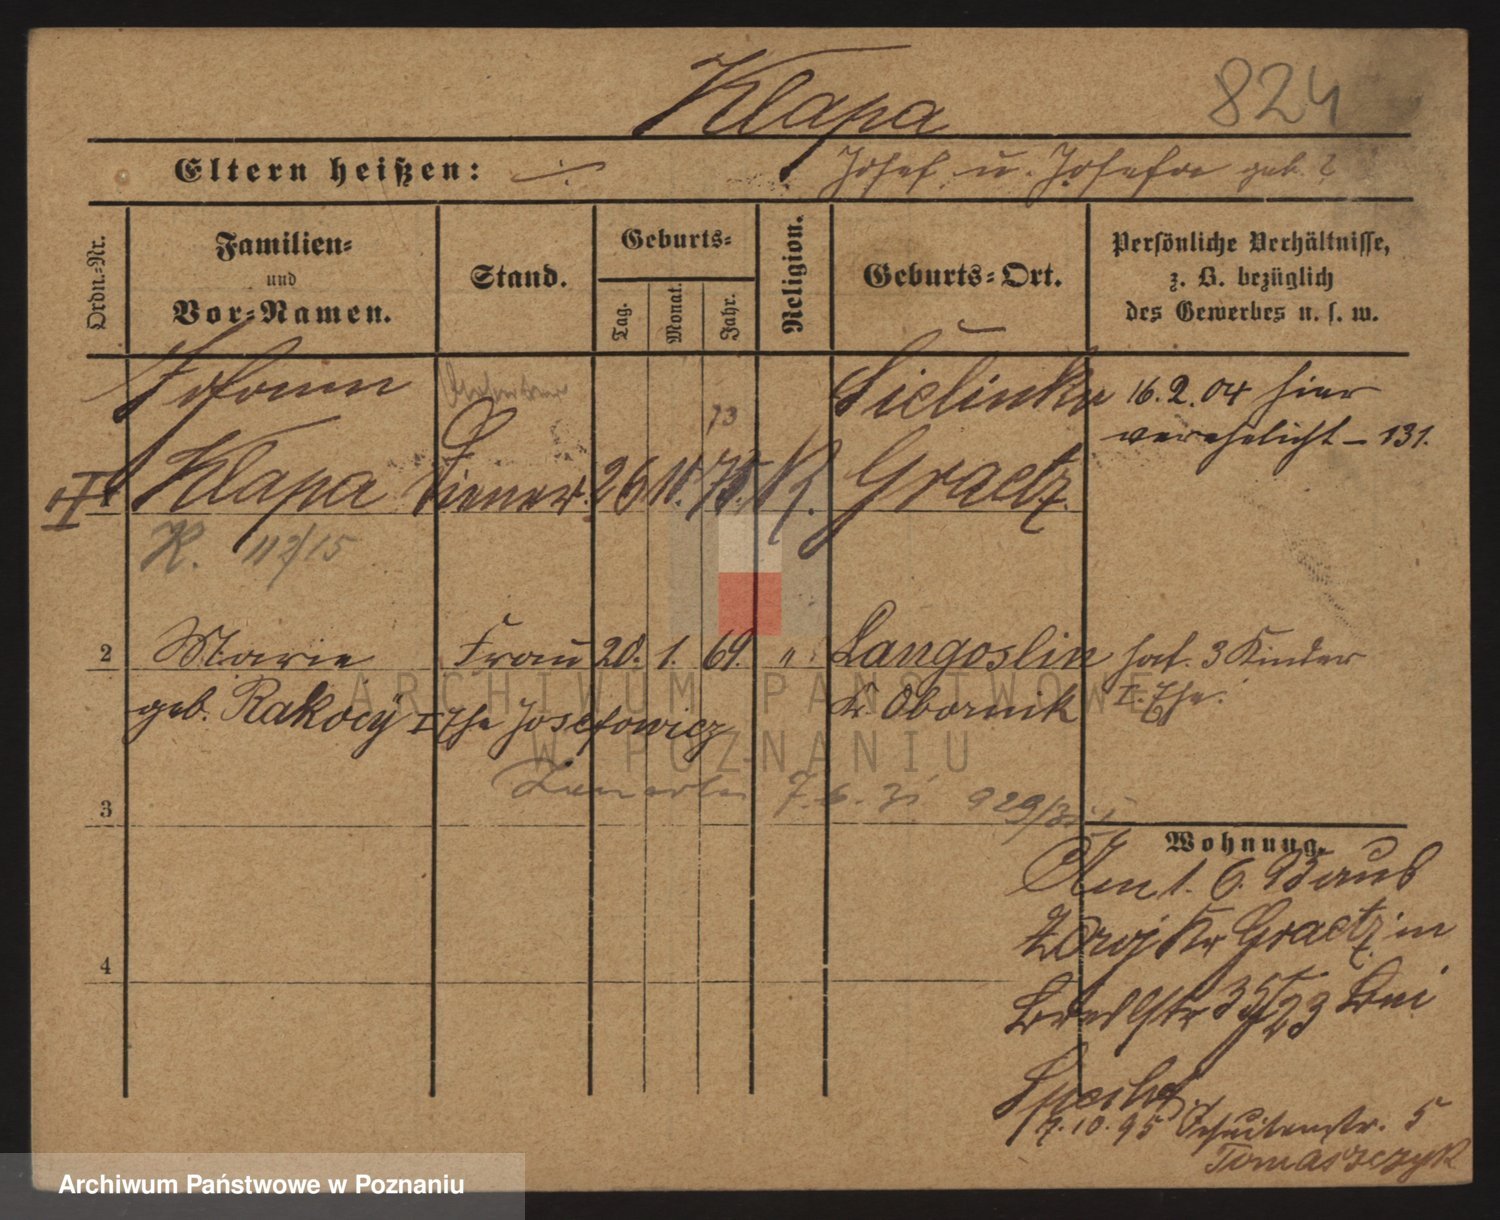 Klapa
824
Eltern heißen: Josef u. Josefa geb. ?
Ordn.-Nr.
Familien-
und
Vor-Namen.
Stand.
Geburts-
Tag.
Monat.
Jahr.
Religion.
Geburts-Ort.
Persönliche Verhältnisse,
z. B. bezüglich
des Gewerbes u. s. w.
Johann
Arbeiter
73
Sielinko
16.2.04 hier
verehelicht - 131.
1 Klapa Diener. 26 11. 75. K. Graetz.
K. 112/15
2 Marie Frau 20. 1. 69. " Langoslin hat 3 Kinder
geb. Rakocy I Ehe Josefowicz Kr Obornik I. Ehe.
7.6.
3
929/
Wohnung.
Am 1. 6. 93 aus
Kr Graetz in
4
35/23 bei
7.10.95 Jesuitenstr. 5
Tomaszczyk
ARCHIWUM PAŃSTWOWE
W POZNANIU
Archiwum Państwowe w Poznaniu